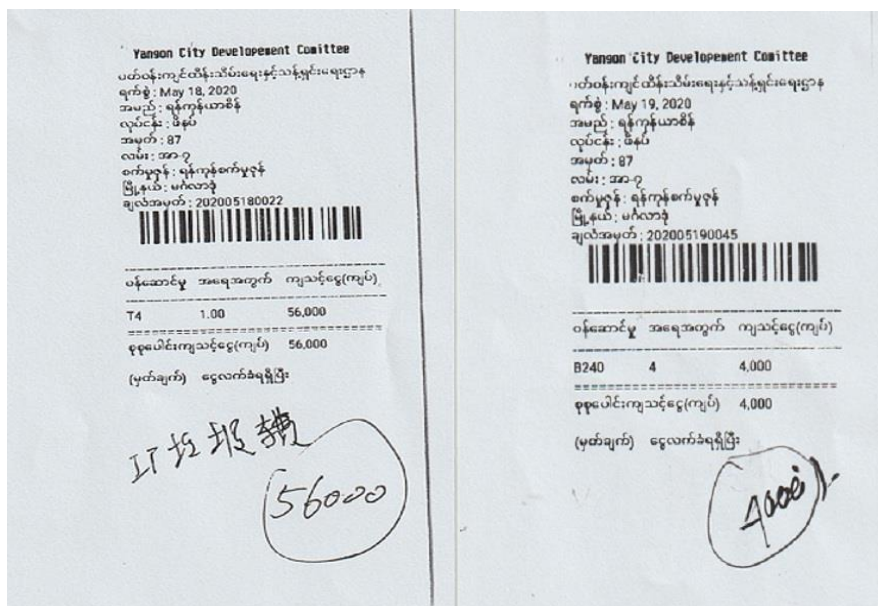 Yangon City Developement Comittee
ပတ်ဝန်းကျင်ထိန်းသိမ်းရေးနှင့်သန့်ရှင်းရေးဌာန
ရက်စွဲ : May 18, 2020
အမည် : ရန်ကုန်ယာစိန်
လုပ်ငန်း : ဖိနပ်
အမှတ် : 87
လမ်း : အာ-၇
စက်မှုဇုန် : ရန်ကုန်စက်မှုဇုန်
မြို့နယ် : မင်္ဂလာဒုံ
ချလံအမှတ် : 202005180022
ဝန်ဆောင်မှု အရေအတွက် ကျသင့်ငွေ(ကျပ်)
T4 1.00 56,000
စုစုပေါင်းကျသင့်ငွေ(ကျပ်) 56,000
(မှတ်ချက်) ငွေလက်ခံရရှိပြီး
垃圾
56000
Yangon City Developement Comittee
ပတ်ဝန်းကျင်ထိန်းသိမ်းရေးနှင့်သန့်ရှင်းရေးဌာန
ရက်စွဲ : May 19, 2020
အမည် : ရန်ကုန်ယာစိန်
လုပ်ငန်း : ဖိနပ်
အမှတ် : 87
လမ်း : အာ-၇
စက်မှုဇုန် : ရန်ကုန်စက်မှုဇုန်
မြို့နယ် : မင်္ဂလာဒုံ
ချလံအမှတ် : 202005190045
ဝန်ဆောင်မှု အရေအတွက် ကျသင့်ငွေ(ကျပ်)
B240 4 4,000
စုစုပေါင်းကျသင့်ငွေ(ကျပ်) 4,000
(မှတ်ချက်) ငွေလက်ခံရရှိပြီး